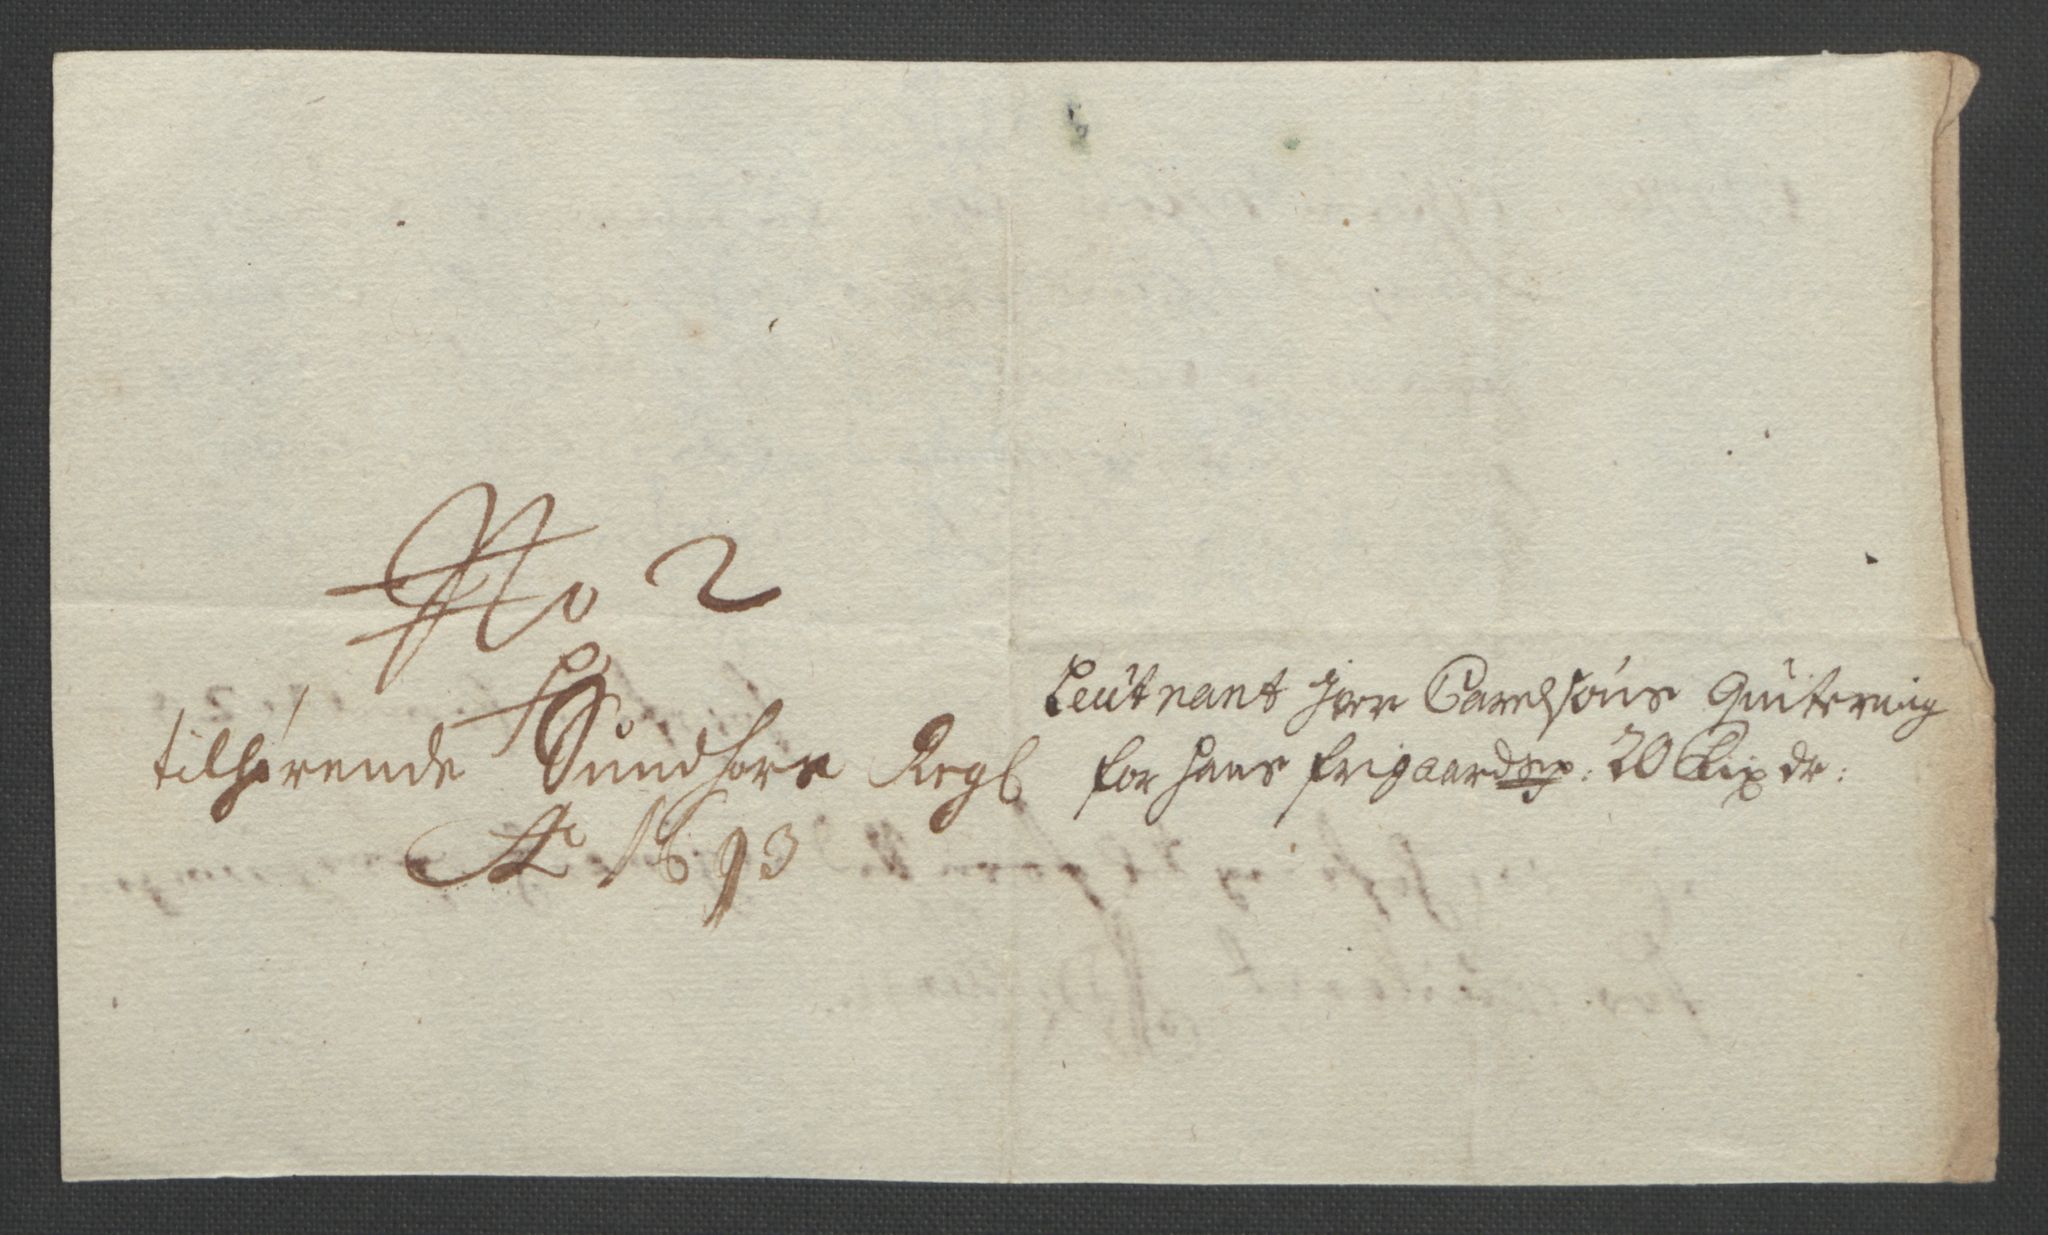 No 2
tilhørende Sundhors Regl
Ao 1693
Leütnant Iver Carelsøns Quitering
for hans frigaard 20 Rix dr: